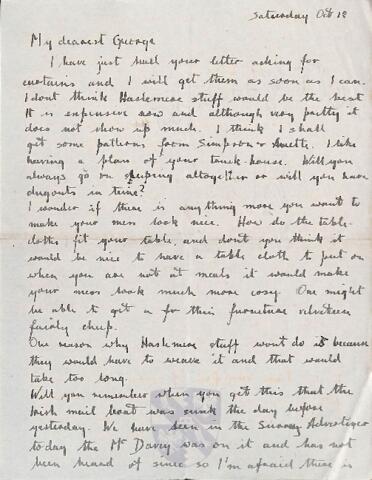 Saturday Oct 12
My dearest George
I have just had your letter asking for
curtains and I will get them as soon as I can.
I dont think Haslemere stuff would be the best
It is expensive now and although very pretty it
does not show up much. I think I shall
get some patterns from Simpson &
having a plan of your trench-house. Will you
always go on sleeping altogether or will you have
dugouts in time?
I wonder if there is anything more you want to
make your mess look nice. How do the table-
cloths fit your table, and don't you think it
would be nice to have a table cloth to put on
when you are not at meals it would make
your mess look much more cosy. One might
be able to get a fir this furniture velveteen
fairly cheap.
One reason why Haslemere stuff wont do is because
they would have to weave it and that would
take too long.
Will you remember when you get this that the
Irish mail boat was sunk the day before
yesterday. We have seen in the Surrey Advertiser
today the Mr Davey was on it and has not
been heard of since so I'm afraid there is